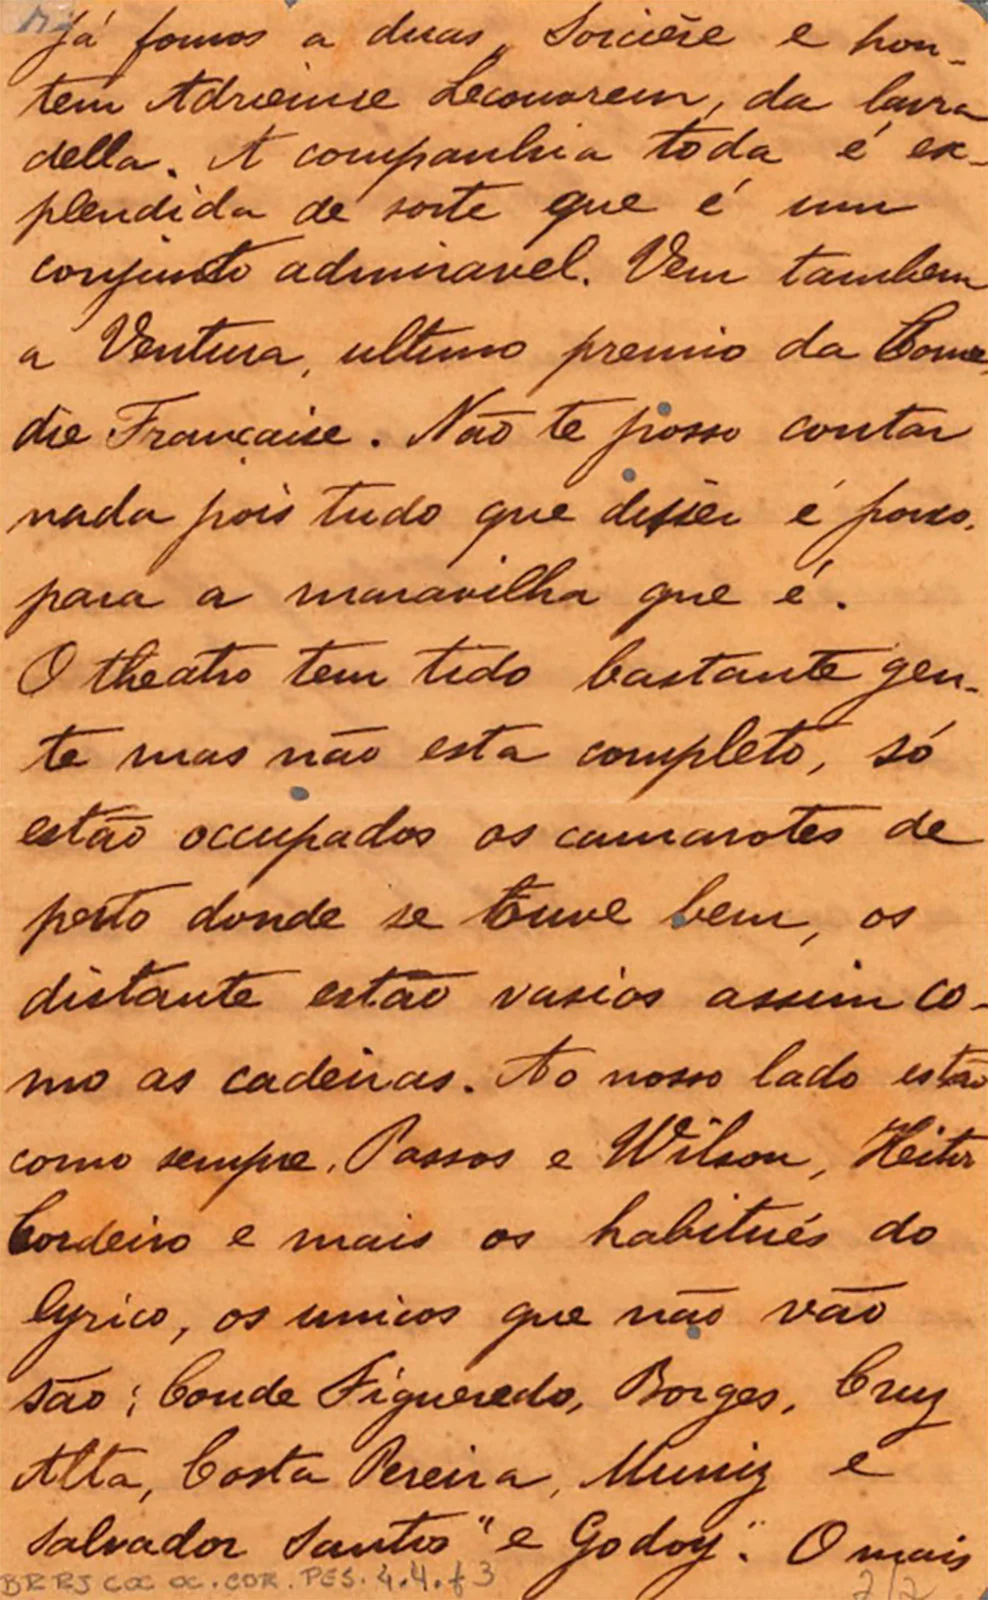 Já fomos a duas, Sorcière e hon-
tem Adrienne Lecouvrem, da lavra
della. A companhia toda é ex-
plendida de sorte que é um
conjuncto admiravel. Vem tambem
a Ventura, ultimo premio da Come,
die Française. Não te posso contar
nada pois tudo que disser é pouco.
para a maravilha que é.
O theatro tem tido bastante gen-
te mas não esta completo, só
estão occupados os camarotes de
perto donde se ouve bem, os
distante estão vasios assim co-
mo as cadeiras. Ao nosso lado estão
como sempre, Passos e Wilson, Heitor
Cordeiro e mais os habitués do
lyrico, os unicos que não vão
são: Conde Figueredo, Borges, Cruz
Alta, Costa Pereira, Muniz e
Salvador Santos "e Godoy". O mais
BR RJ COC OC.COR.PES.4.4.f3
2/2